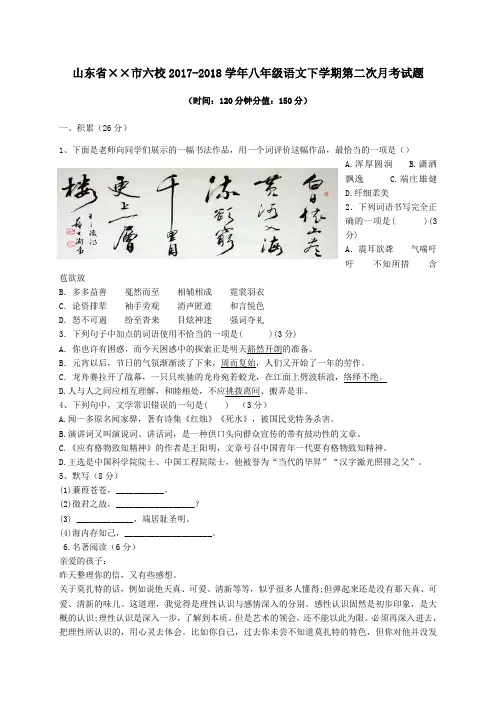 山东省××市六校2017-2018学年八年级语文下学期第二次月考试题
(时间：120分钟分值：150分)
一、积累(26分)
1、下面是老师向同学们展示的一幅书法作品，用一个词评价这幅作品，最恰当的一项是()
白日依山尽
黄河入海
流欲窮
千里目
更上一層
樓
A.浑厚圆润 B.潇洒
飘逸 C.端庄雄健
D.纤细柔美
2．下列词语书写完全正
确的一项是( )(3
分)
A．震耳欲聋 气喘吁
吁 不知所措 含
苞欲放
B．多多益善 戛然而至 相辅相成 霓裳羽衣
C．论资排辈 袖手旁观 消声匿迹 和言悦色
D．怒不可遏 纷至沓来 目炫神迷 强词夺礼
3．下列句子中加点的词语使用不恰当的一项是( )(3分)
A．你也许有困惑，而今天困惑中的探索正是明天豁然开朗的准备。
B．元宵以后，节日的气氛渐渐淡了下来，周而复始，人们又开始了一年的劳作。
C．龙舟赛拉开了战幕，一只只疾驰的龙舟宛若蛟龙，在江面上劈波斩浪，络绎不绝。
D.人与人之间应相互理解，和睦相处，不应挑拨离间、搬弄是非。
4、下列句中，文学常识错误的一句是( ) (3分)
A.闻一多原名闻家骅，著有诗集《红烛》《死水》，被国民党特务杀害。
B.演讲词又叫演说词、讲话词，是一种供口头向群众宣传的带有鼓动性的文章。
C.《应有格物致知精神》的作者是王阳明，文章号召中国青年一代要有格物致知精神。
D.王选是中国科学院院士、中国工程院院士，他被誉为“当代的毕昇”“汉字激光照排之父”。
5、默写(8分)
(1)蒹葭苍苍，___________。
(2)微君之故，__________________？
(3) _____________，端居耻圣明。
(4)海内存知己，____________________。
6.名著阅读(6分)
亲爱的孩子：
昨天整理你的信，又有些感想。
关于莫扎特的话，例如说他天真、可爱、清新等等，似乎很多人懂得;但弹起来还是没有那天真、可
爱、清新的味儿。这道理，我觉得是理性认识与感情深入的分别。感性认识固然是初步印象，是大
概的认识;理性认识是深入一步，了解到本质。但是艺术的领会，还不能以此为限。必须再深入进去，
把理性所认识的，用心灵去体会。比如你自己，过去你未尝不知道莫扎特的特色，但你对他并没发